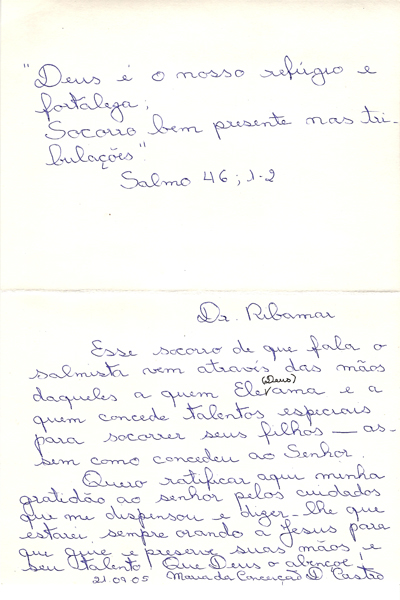 "Deus é o nosso refúgio e
fortaleza;
Socorro bem presente nas tri-
bulações"
Salmo 46; 1-2
Dr. Ribamar
Esse socorro de que fala o
salmista vem através das mãos
daqueles a quem Ele (Deus) ama e a
quem concede talentos especiais
para socorrer seus filhos — as-
sem como concedeu ao Senhor.
Quero ratificar aqui minha
gratidão ao senhor pelos cuidados
que me dispensou e dizer-lhe que
estarei sempre orando a Jesus para
que guie e preserve suas mãos e
seu talento! Que Deus o abençoe!
21.09.05 Maria da Conceição D. Castro